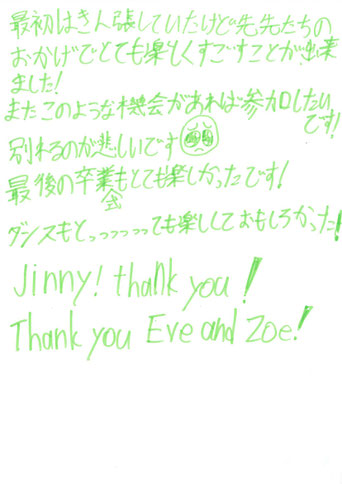 最初はきん張していたけど先先たちの
おかげでとても楽しくすごすことが出来
ました!
またこのような機会があれば参加したい
です!
別れるのが悲しいです
最後の卒業会もとても楽しかったです!
ダンスもとっっっっっても楽しくておもしろかった!
Jinny! thank you!
Thank you Eve and Zoe!